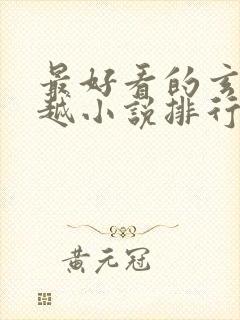 最好看的玄
越小説排行
黃元冠